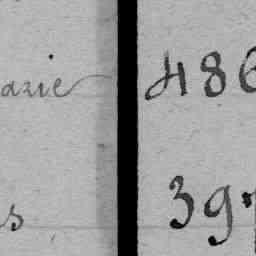 arie 486
s 397